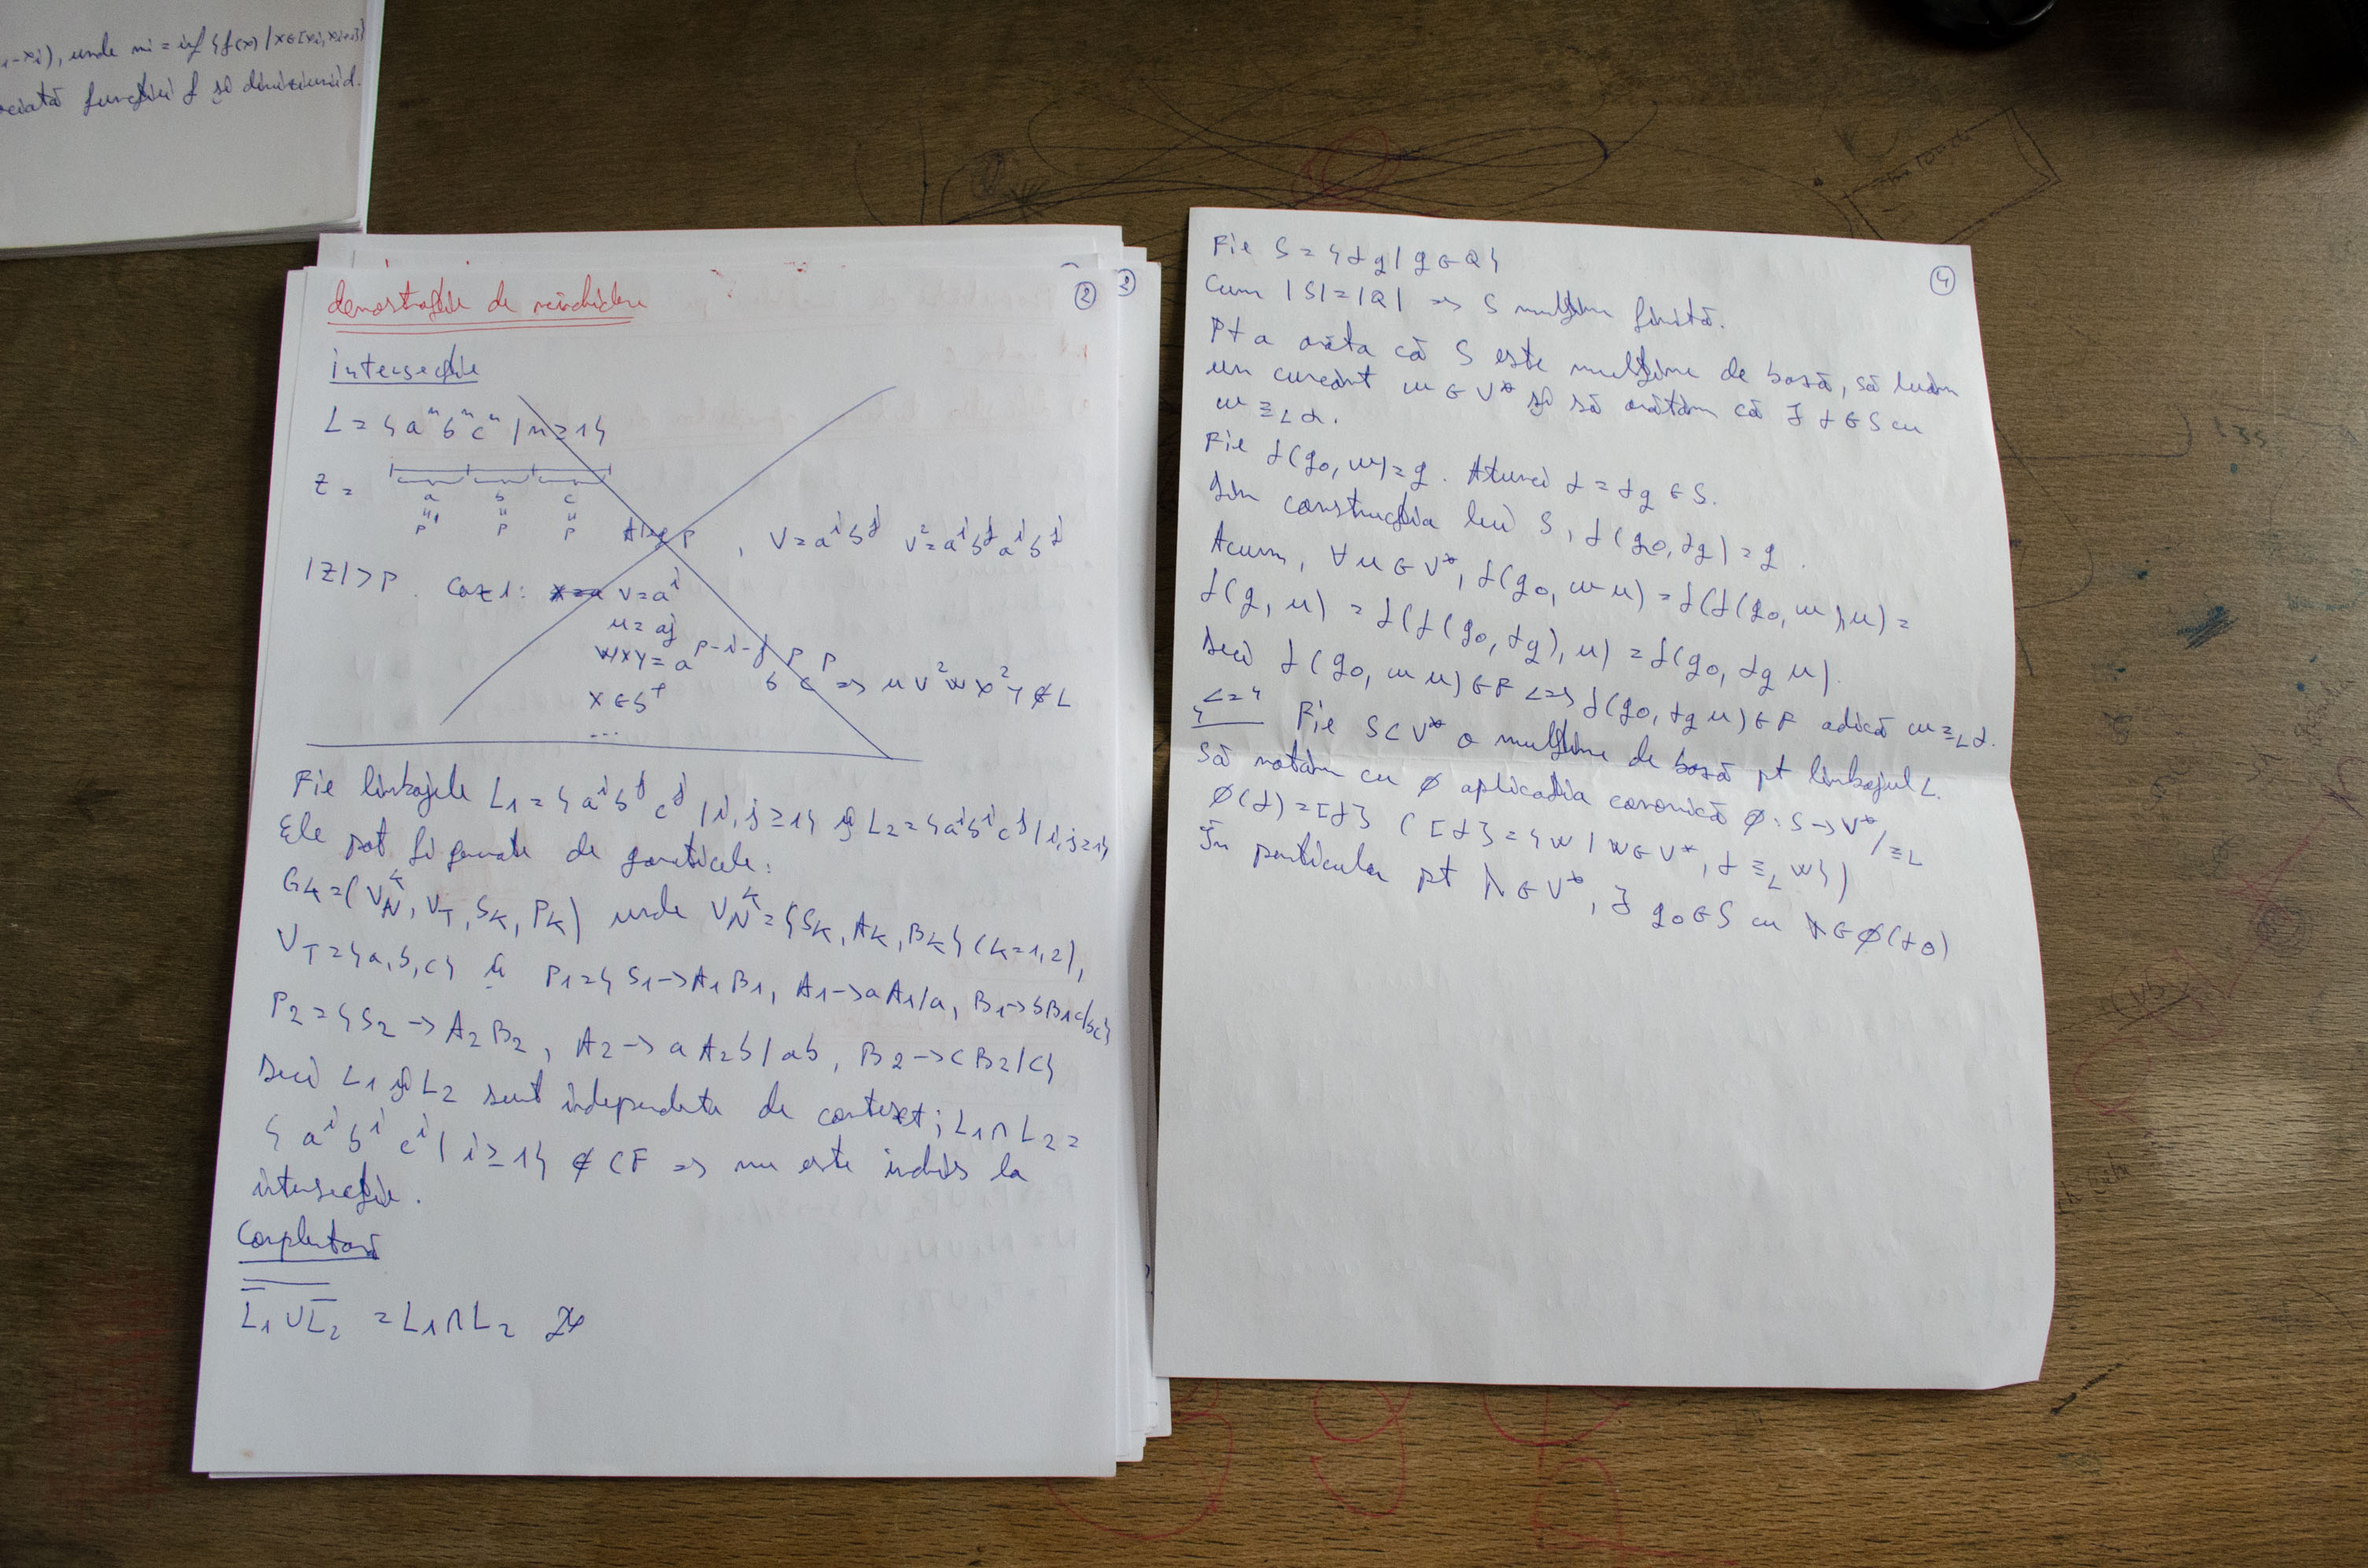 1-xi), unde mi = inf {f(x) | x∈[xi, xi+1]}
ociată funcției f și diviziunii d.
②
demostrație de neînchidere
intersecție
L = {aⁿbⁿcⁿ | n≥1}
z =
a b c
p p p
, v = aⁱbʲ v² = aⁱbʲaⁱbʲ
|z| > p. Caz 1: x=a v = aⁱ
u = aj
wxy = a^(p-i-j) b^p c^p => uv²wx²y ∉ L
x ∈ b⁺
...
Fie limbajele L₁ = {aⁱbʲcʲ | i,j≥1} și L₂ = {aⁱbⁱcʲ | i,j≥1}
Ele pot fi generate de gramaticile:
Gₖ = (V_N^k, V_T, Sₖ, Pₖ) unde V_N^k = {Sₖ, Aₖ, Bₖ} (k=1,2),
V_T = {a,b,c} și P₁ = {S₁→A₁B₁, A₁→aA₁/a, B₁→bB₁c/bc}
P₂ = {S₂→A₂B₂, A₂→aA₂b/ab, B₂→cB₂/c}
Deci L₁ și L₂ sunt independente de context; L₁∩L₂ =
{aⁱbⁱcⁱ | i≥1} ∉ CF => nu este închis la
intersecție.
Complementară
L̅₁ ∪ L̅₂ = L₁∩L₂
②
④
Fie S = {αq | q∈Q}
Cum |S| = |Q| => S mulțime finită.
Pt a arăta că S este mulțime de bază, să luăm
un cuvânt w∈V* și să arătăm că ∃ α∈S cu
w ≡_L α.
Fie f(q₀, w) = q. Atunci α = αq ∈ S.
Din construcția lui S, f(q₀, αq) = q.
Acum, ∀u∈V*, f(q₀, wu) = f(f(q₀, w), u) =
f(q, u) = f(f(q₀, αq), u) = f(q₀, αq u).
Deci f(q₀, wu)∈F <=> f(q₀, αq u)∈F adică w ≡_L α.
"<=" Fie S⊂V* o mulțime de bază pt limbajul L.
Să notăm cu ∅ aplicația canonică ∅: S→V*/≡_L
∅(α) = [α] ([α] = {w | w∈V*, α ≡_L w})
În particular pt λ∈V*, ∃ q₀∈S cu λ∈∅(α₀)